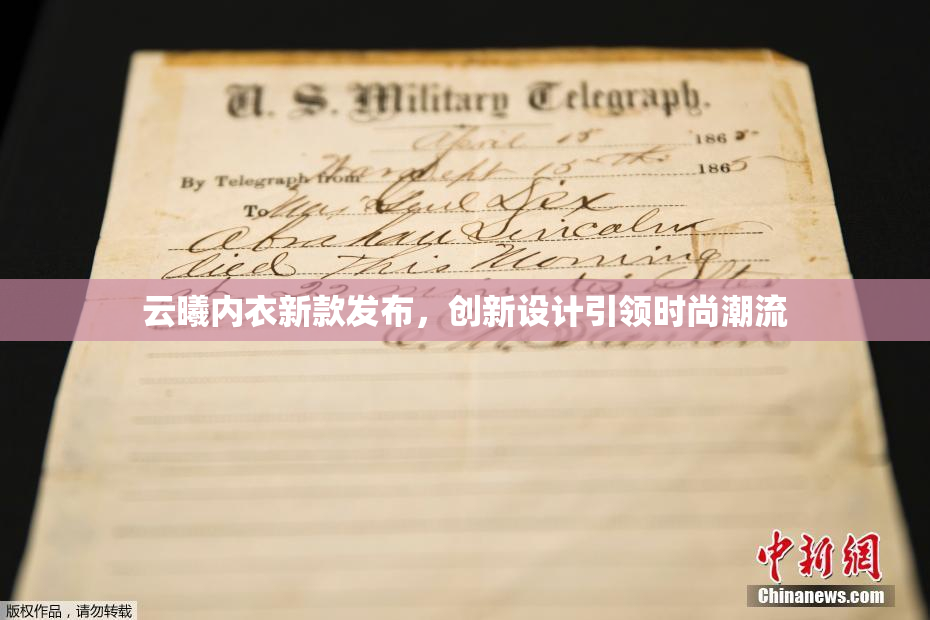 U. S. Military Telegraph.
April 15 1865
By Telegraph from War Dept 15th 1865
To Maj Genl Dix
Abraham Lincoln
died This Morning
at 22 minutes after
云曦内衣新款发布，创新设计引领时尚潮流
E. M. Stanton
中新网
Chinanews.com
版权作品，请勿转载